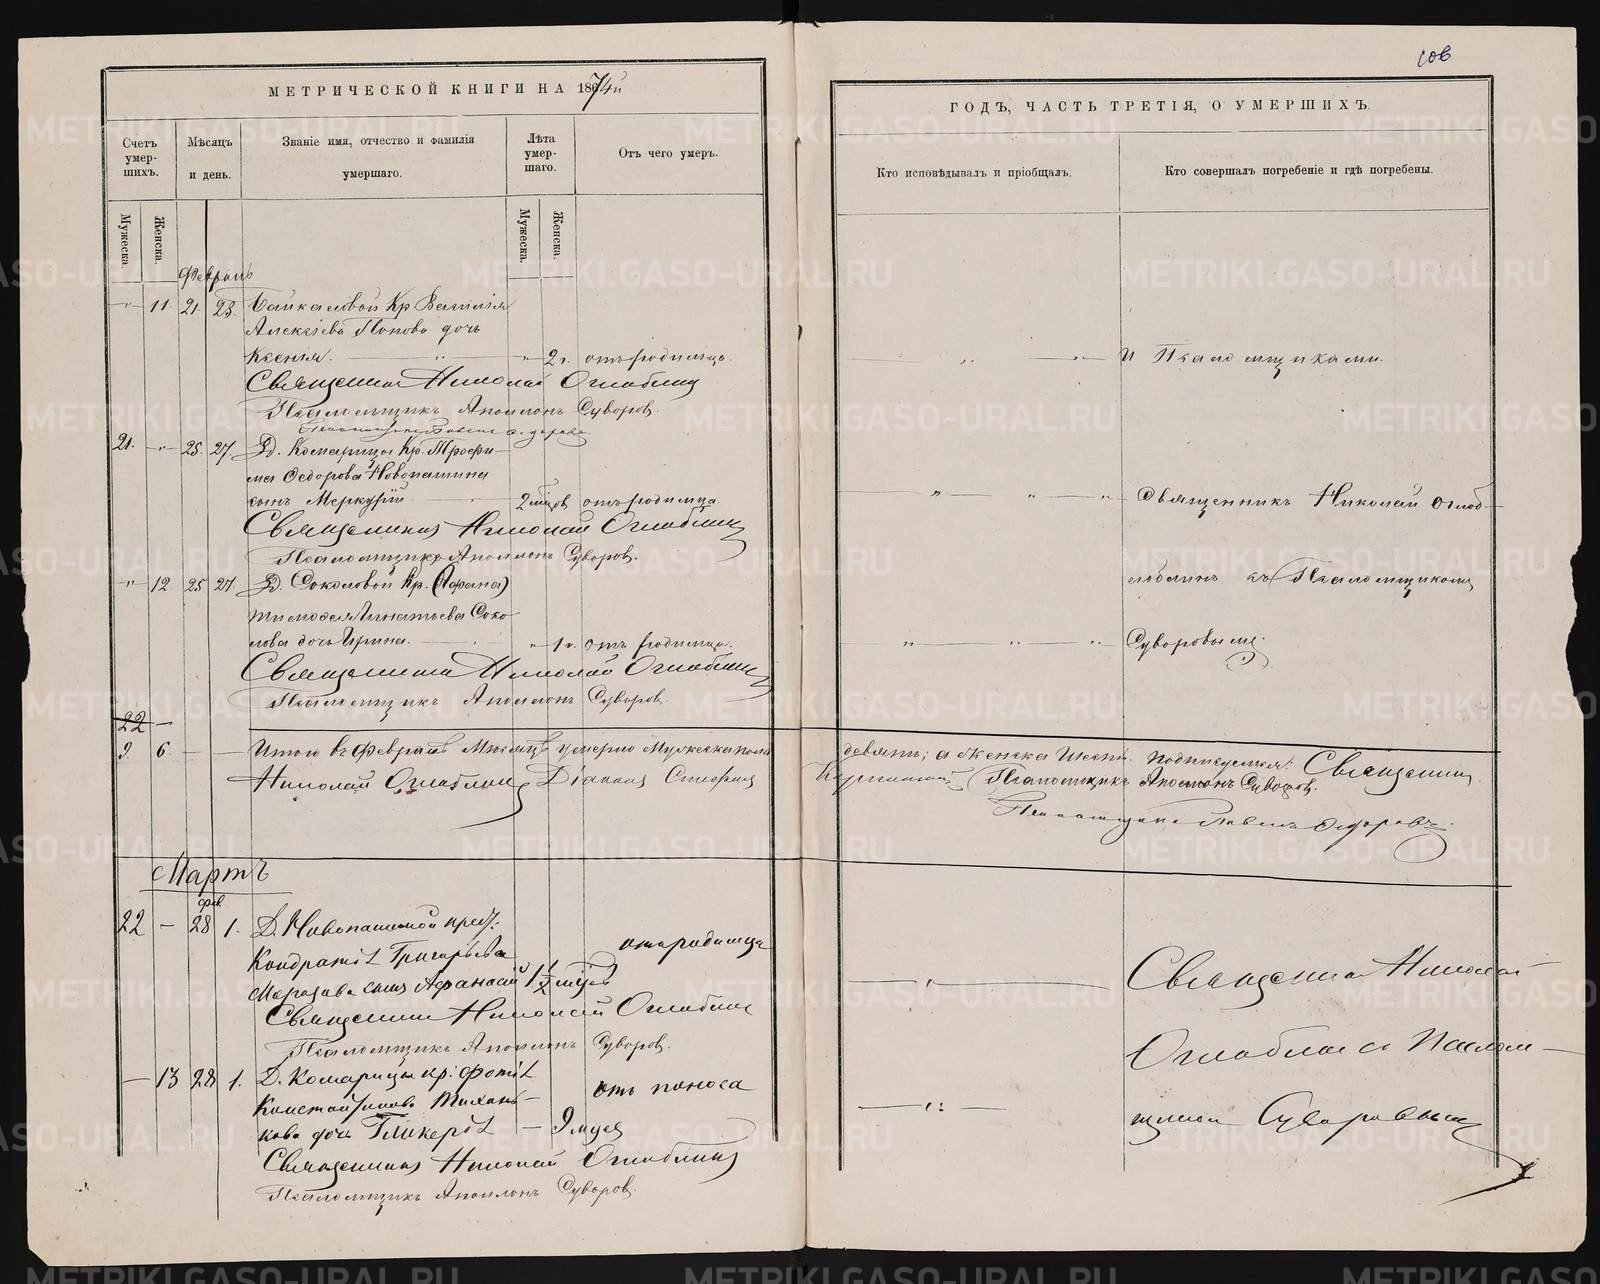 МЕТРИЧЕСКОЙ КНИГИ НА 1874й
Счетъ умер- шихъ.
Мѣсяцъ и день.
Званіе имя, отчество и фамилія умершаго.
Лѣта умер- шаго.
Отъ чего умеръ.
Мужеска.
Женска.
Мужеска.
Женска.
Февраль
" 11. 21. 23. Байкаловой Кр. Василія
Алексѣева Попова дочь
Ксенія. " 2г. отъ родимца.
Священникъ Николай Оглоблинъ
Псаломщикъ Аполлонъ Суворов.
21. " 25. 27. Д. Комарицы Кр. Трофи-
ма Федорова Новопашина
сынъ Меркурій 2 мѣсяцов отъ родимца.
Священникъ Николай Оглоблинъ
Псаломщикъ Аполлонъ Суворов.
" 12. 25 27 Д. Соколовой Кр. (Афана)
Игнатьева Соко-
лова дочь Ирина. " 1 г. отъ родимца.
Священникъ Николай Оглоблинъ
Псаломщикъ Аполлонъ Суворов.
22 —
9. 6. Итого въ Февралѣ Мѣсяцѣ умерло Мужеска пола
Николай Оглоблинъ Діаконъ Стефанъ
Мартъ
фев.
22 — 28 1. Д. Новопашиной крест.
Кондратія Григорьева
отъ родимца
Морозова сынъ Афанасій 1 1/2 мѣсяц
Священникъ Николай Оглоблинъ
Псаломщикъ Аполлонъ Суворов.
— 13 28 1. Д. Комарицы кр. Фотія
Константинова
отъ поноса
кова дочь Гликерія — 9 мѣсяц
Священникъ Николай Оглоблинъ
Псаломщикъ Аполлонъ Суворов.
106
ГОДЪ, ЧАСТЬ ТРЕТІЯ, О УМЕРШИХЪ
Кто исповѣдывалъ и пріобщалъ.
Кто совершалъ погребеніе и гдѣ погребены.
" " И Псаломщиками.
" " " Священникъ Николай Оглоб-
лоблинъ съ Псаломщикомъ
" " " Суворовымъ.
девять; а Женска Шесть. Подписуемся: Священникъ
Псаломщикъ Аполлонъ Суворов.
Псаломщикъ Павелъ Федоровъ.
" Священникъ Николай
Оглоблинъ съ Псалом-
" щикомъ Суворовымъ
METRIKI.GASO-URAL.RU